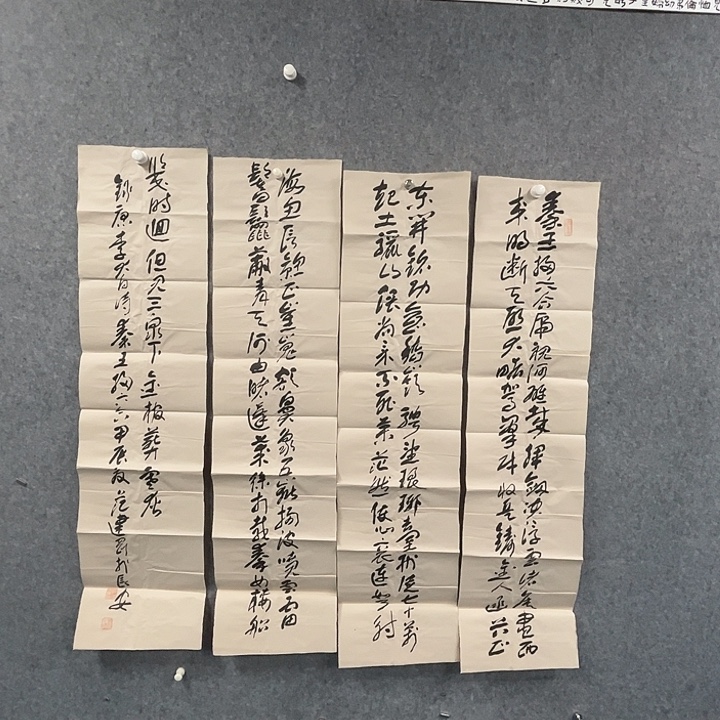 秦王掃六合虎視何雄哉揮劍決浮雲諸侯盡西
来明斷天啟大略駕羣才收兵鑄金人函谷正
東開銘功會稽嶺騁望琅琊臺刑徒七十萬
起土驪山隈尚采不死藥茫然使心哀連弩射
海魚長鯨正崔嵬額鼻象五嶽揚波噴雲雷
鬐鬣蔽青天何由睹蓬萊徐市載秦女樓船
幾時迴但見三泉下金棺葬寒灰
錄唐李太白詩秦王掃六合甲辰夏范建於長安